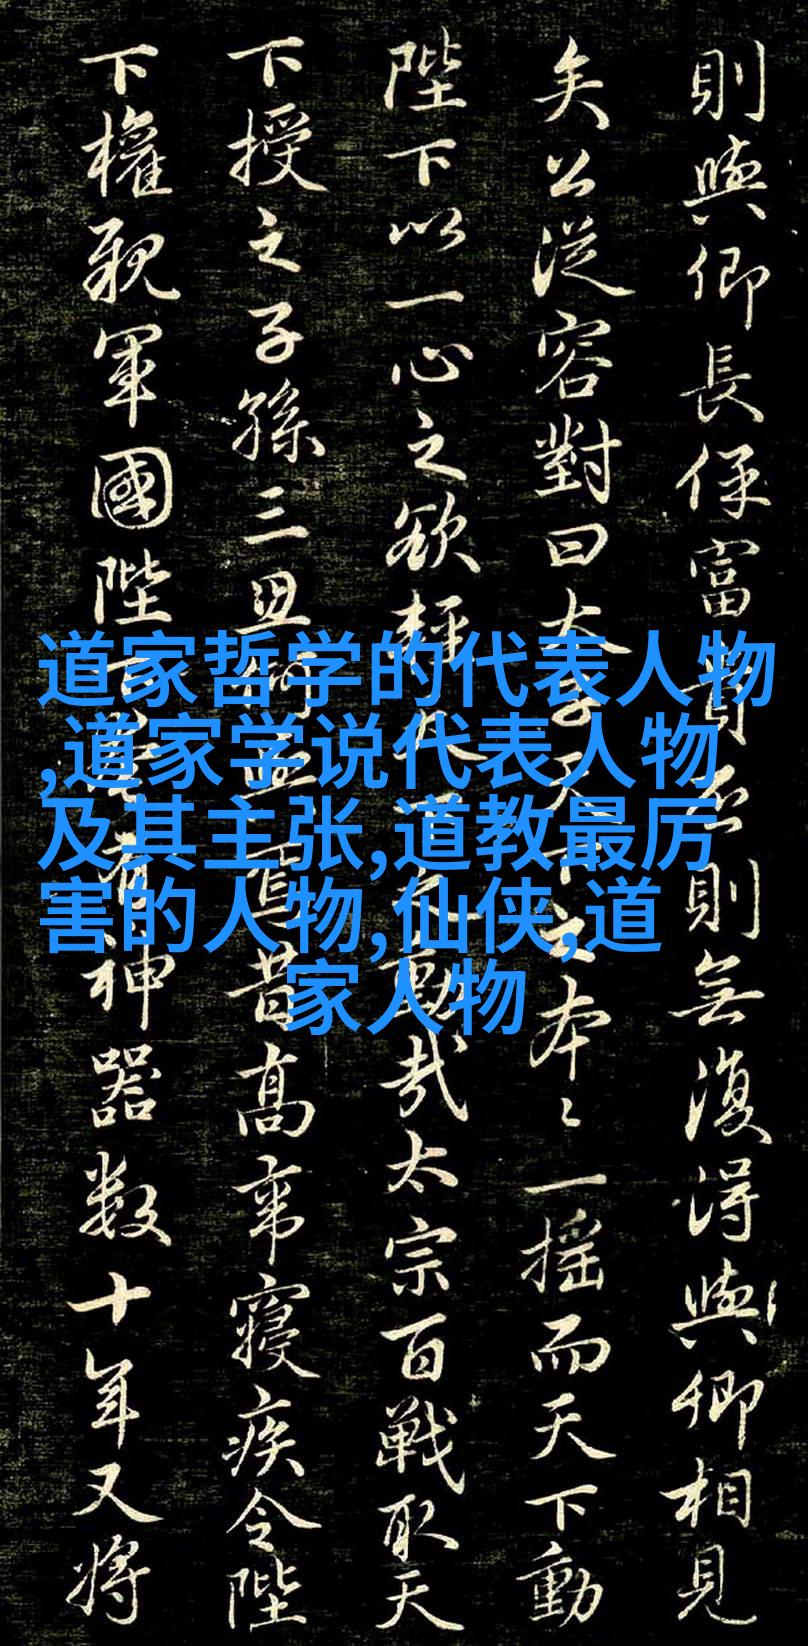 則與卿長保富貴不則無復得與卿相見
矣公從容對曰太子天下之本〻一搖而天下動
陛下以一心之欲輕天動哉太宗百戰取天
下授之子孫三思何昔高帝寢疾令陛
下權親軍國陛下有神器数十年又將
道家哲学的代表人物
,道家学说代表人物
及其主张,道教最厉
害的人物,仙侠,道
家人物